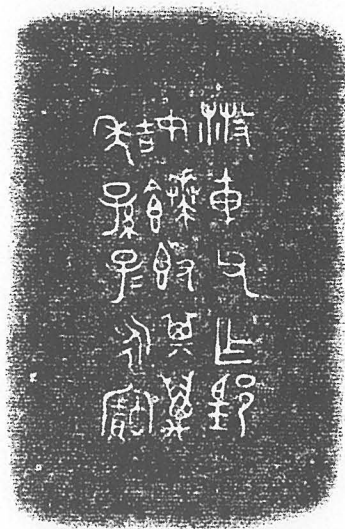 散車父乍
姞𩛥𣪘其萬
年孫子永寶